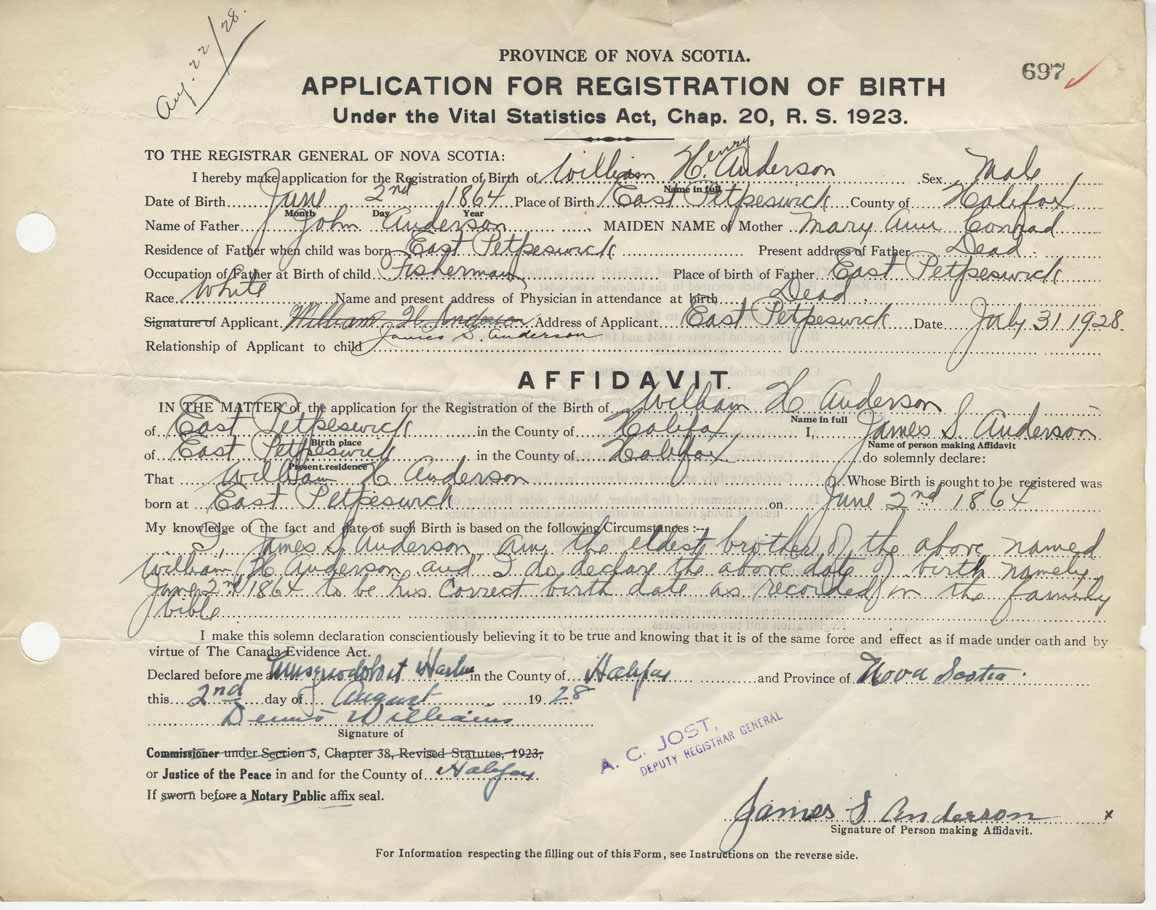 Aug. 22/28.
PROVINCE OF NOVA SCOTIA.
697
APPLICATION FOR REGISTRATION OF BIRTH
Under the Vital Statistics Act, Chap. 20, R. S. 1923.
TO THE REGISTRAR GENERAL OF NOVA SCOTIA:
I hereby make application for the Registration of Birth of William H. Henry Anderson Sex Male
Name in full
Date of Birth June 2nd 1864 Place of Birth East Petpeswick County of Halifax
Month Day Year
Name of Father John Anderson MAIDEN NAME of Mother Mary Ann Conrad
Residence of Father when child was born East Petpeswick Present address of Father Dead
Occupation of Father at Birth of child Fisherman Place of birth of Father East Petpeswick
Race White Name and present address of Physician in attendance at birth Dead
Signature of Applicant William H Anderson Address of Applicant East Petpeswick Date July 31 1928.
Relationship of Applicant to child James S. Anderson
AFFIDAVIT.
IN THE MATTER of the application for the Registration of the Birth of William H Anderson
Name in full
of East Petpeswick in the County of Halifax I, James S. Anderson
Birth place Name of person making Affidavit
of East Petpeswick in the County of Halifax do solemnly declare:
Present residence
That William H Anderson Whose Birth is sought to be registered was
born at East Petpeswick on June 2nd 1864
My knowledge of the fact and date of such Birth is based on the following Circumstances :-
I, James S Anderson, am the eldest brother of the above named
William H Anderson and I do declare the above date of birth namely
June 2nd 1864 to be his correct birth date as recorded in the family
bible
I make this solemn declaration conscientiously believing it to be true and knowing that it is of the same force and effect as if made under oath and by
virtue of The Canada Evidence Act.
Declared before me at Musquodoboit Harbor in the County of Halifax and Province of Nova Scotia.
this 2nd day of August 1928
Dennis Williams
Signature of
Commissioner under Section 5, Chapter 38, Revised Statutes, 1923,
or Justice of the Peace in and for the County of Halifax.
If sworn before a Notary Public affix seal.
A. C. JOST,
DEPUTY REGISTRAR GENERAL
James S Anderson x
Signature of Person making Affidavit.
For Information respecting the filling out of this Form, see Instructions on the reverse side.